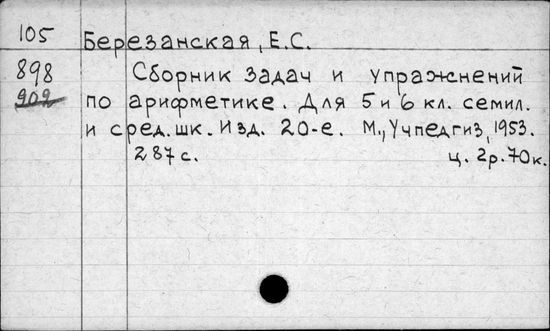 105 Березанская, Е.С.
898 Сборник задач и упражнений
902 по арифметике. Для 5 и 6 кл. семил.
и сред. шк. Изд. 20-е. М., Учпедгиз, 1953.
287 с. ц. 2р. 70 к.